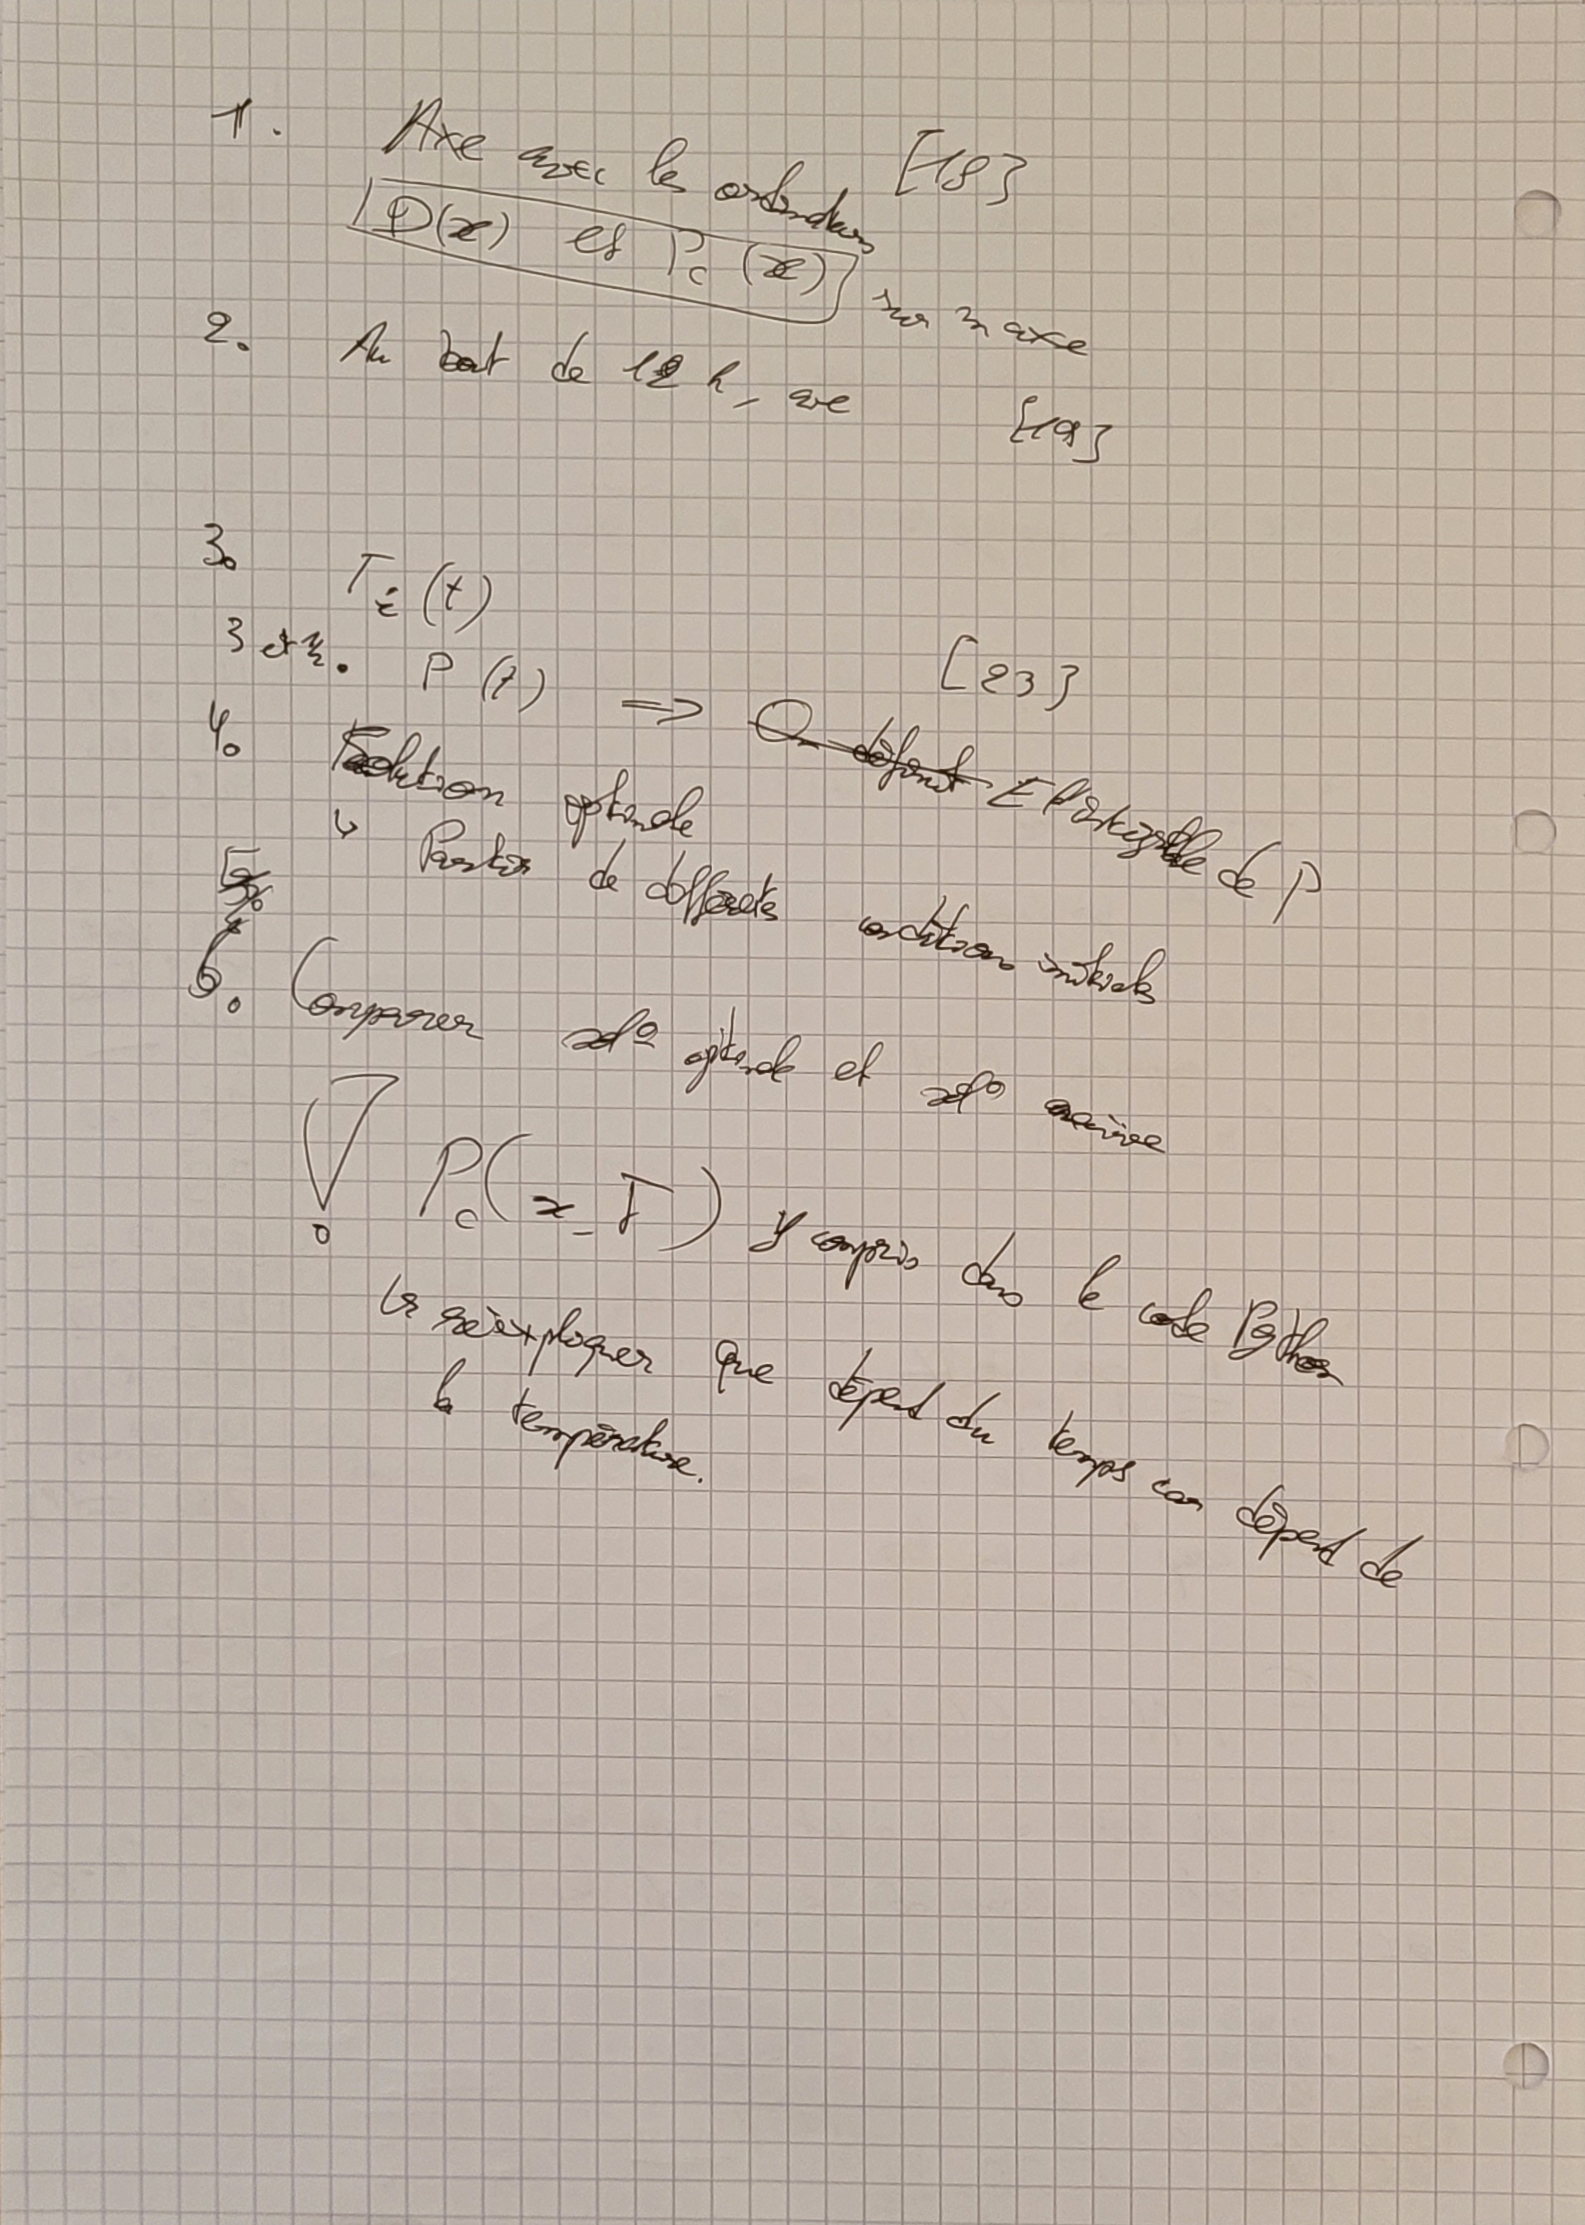 1. Axe avec les ordinateurs [18]
D(x) et Pc (x) sur un axe
2. Au bout de 12 h, axe [19]
3. Ti (t)
3 et 4. P (t) ⇒ On définit E l'intégrale de P [23]
4. Solution optimale
↳ Partir de différentes conditions initiales
5.
6. Comparer sol° optimale et sol°
! Pc(x, T) y compris dans le code Python
↳ réexpliquer que dépend du temps car dépend de
la température.